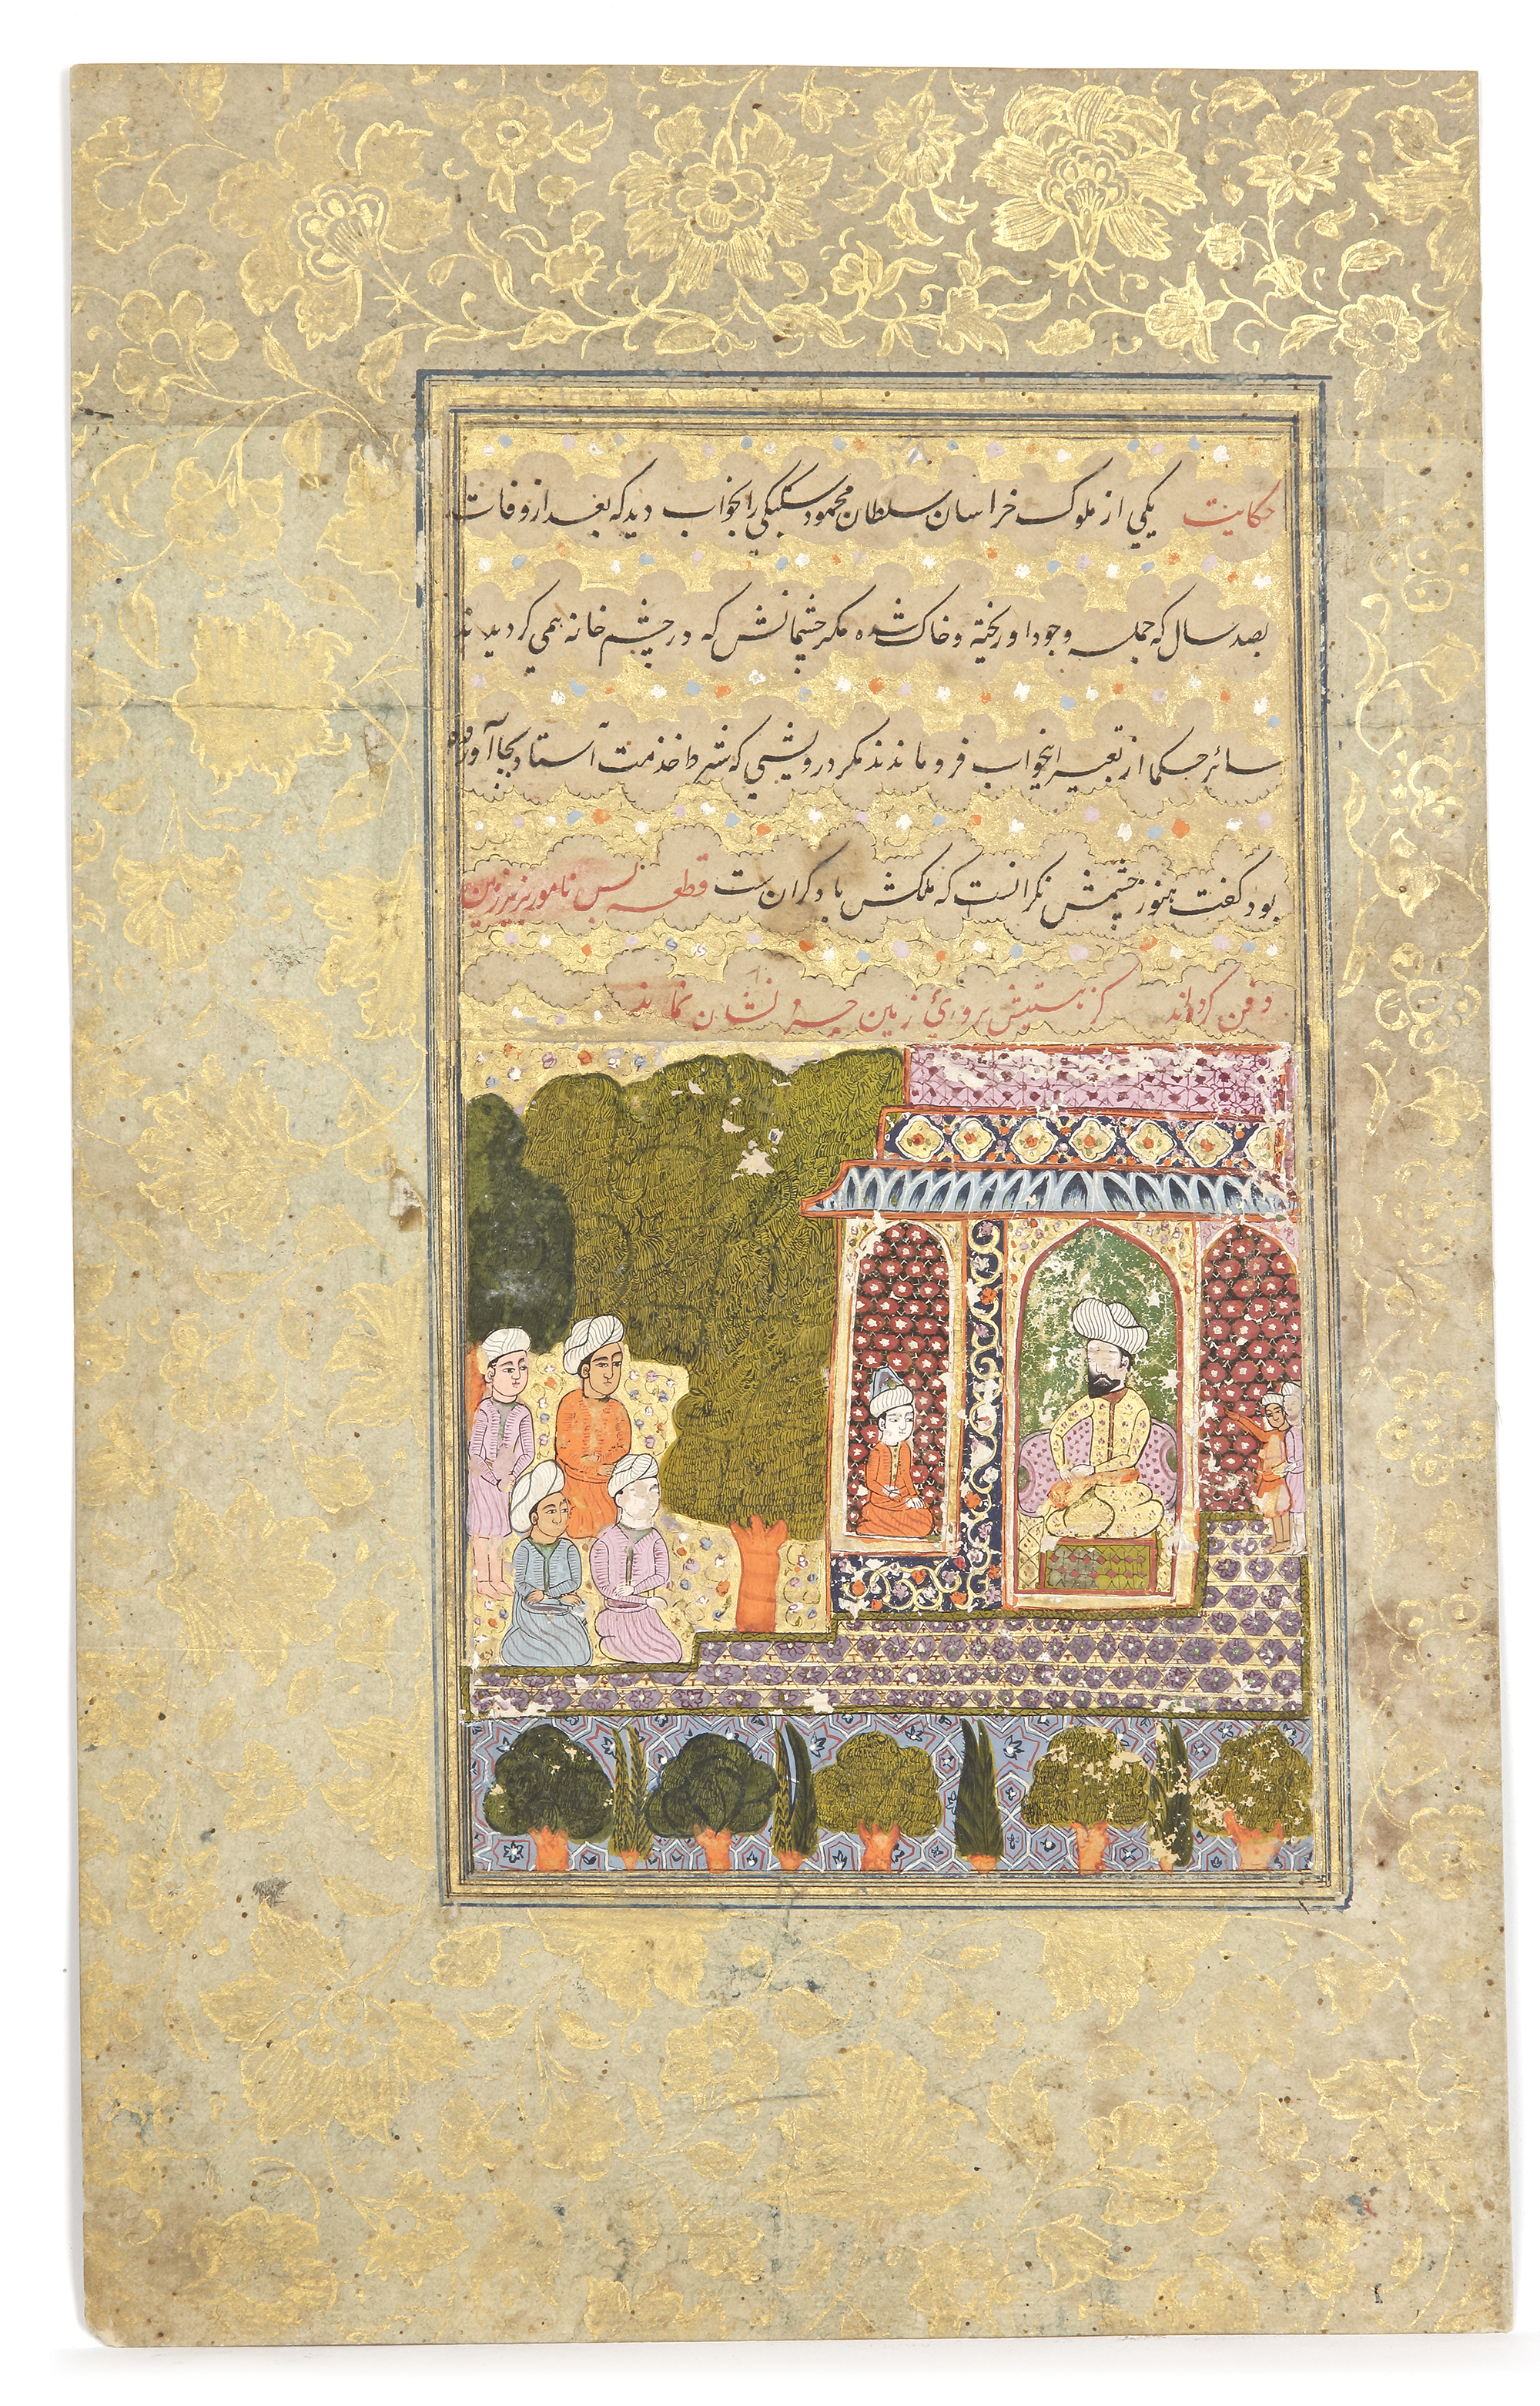 حکایت یکی از ملوک خراسان سلطان محمود سبکتکین را بخواب دید که بعد از وفات
بصد سال که جمله وجود او ریخته و خاک شده مکر چشمانش که در چشم خانه همی کردیدند
سائر حکما از تعبیر اینخواب فرو ماندند مکر درویشی که شرط خدمت استاد بجا آورده
بود کفت هنوز چشمش نکرانست که ملکش با دکرانست قطعه بس نامور بزیر زمین
دفن کرده‌اند کز هستیش بروی زمین نشان نماند